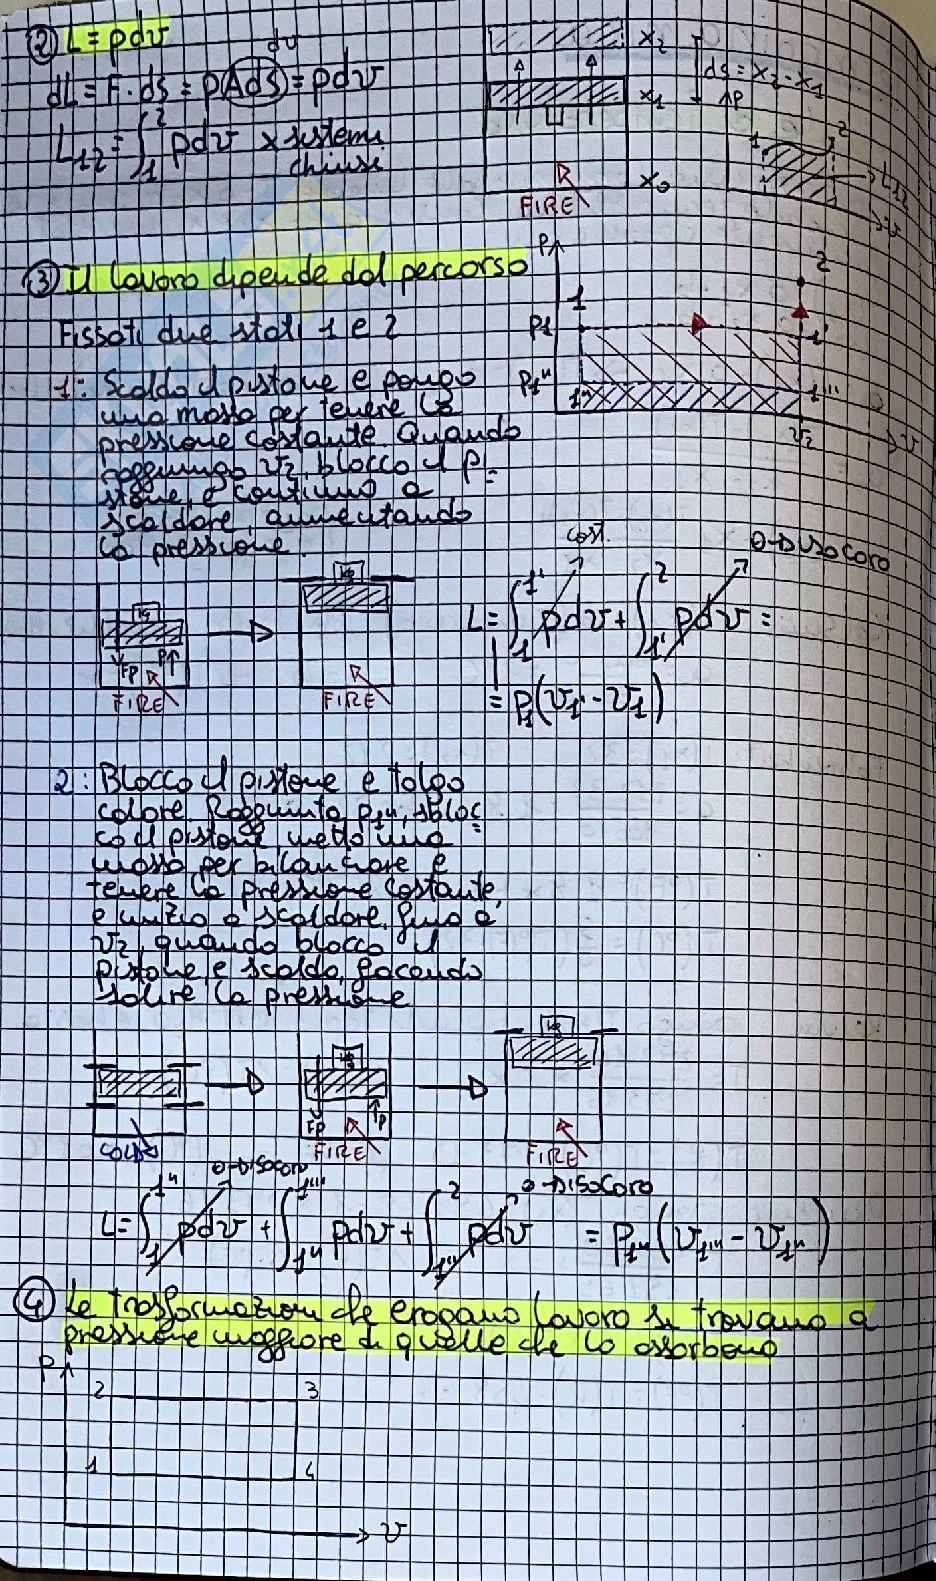 ② L = pdv
dv
dL = F · ds = pAds = pdv
L₁₂ = ∫₁² pdv × sistemi
chiusi
x₂
x₁
x₀
ds = x₂ - x₁
FIRE
P
1
2
L₁₂
v
③ Il lavoro dipende dal percorso
Fissati due stati 1 e 2
1: Scaldo il pistone e pongo
una massa per tenere la
pressione costante. Quando
raggiungo v₂, blocco il pi=
stone, e continuo a
scaldare, aumentando
la pressione.
P
2
1
P1
1'
P1"
1"
1'''
v2
v
cost.
0→ISOCORO
L = ∫₁¹' pdv + ∫₁'² pdv =
= P₁(v₁' - v₁)
kg
Fp
P
FIRE
kg
FIRE
2: Blocco il pistone e tolgo
calore. Raggiunto P₁", sbloc=
co il pistone, metto una
massa per bilanciare e
tenere la pressione costante,
e inizio a scaldare fino a
v₂, quando blocco il
pistone e scaldo, facendo
salire la pressione
COLD
kg
Fp
P
FIRE
kg
FIRE
0→ISOCORO
0→ISOCORO
L = ∫₁¹" pdv + ∫₁"¹''' pdv + ∫₁'''² pdv = P₁" (v₁''' - v₁")
④ Le trasformazioni che erogano lavoro si trovano a
pressione maggiore di quelle che lo assorbono
P
2
3
1
4
v